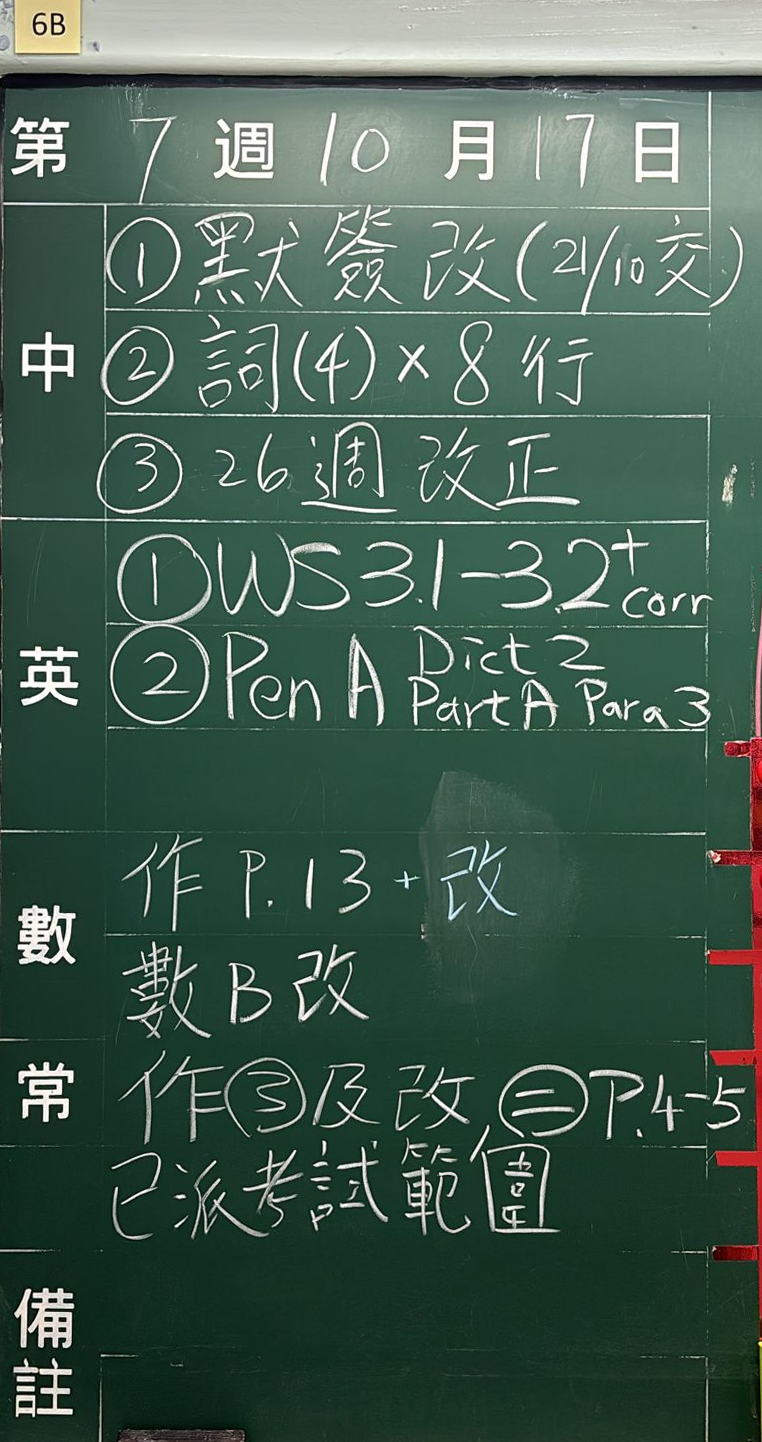 6B
第 7 週 10 月 17 日
中
① 默簽改(21/10交)
② 詞(4)×8行
③ 26週改正
英
① WS 3.1-3.2 + corr
② Pen A Dict 2
Part A Para 3
數
作 P.13 + 改
數B改
常
作③及改, ㊁P.4-5
已派考試範圍
備註